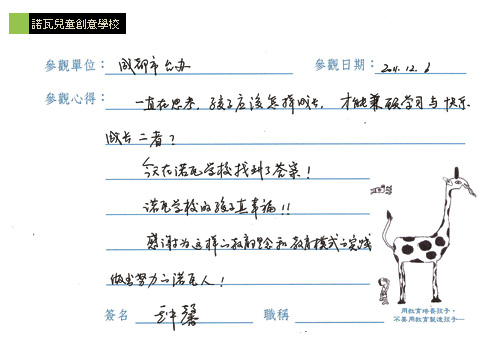 諾瓦兒童創意學校
參觀單位：成都市台办
參觀日期：2011.12.6
參觀心得：一直在思考，孩子应该怎样成长，才能兼顾学习与快乐
成长二者？
今天在诺瓦学校找到了答案！
诺瓦学校的孩子真幸福！！
感谢为这样的教育理念和教育模式而实践
做出努力的诺瓦人！
簽名
職稱
用教育培養孩子，
不要用教育製造孩子